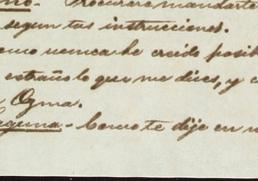 no.- Procuraré mandarte
segun tus instrucciones.
como nunca he creido posib
estraño lo que me dices, y c
Ozma.
aguna - Como te dije en